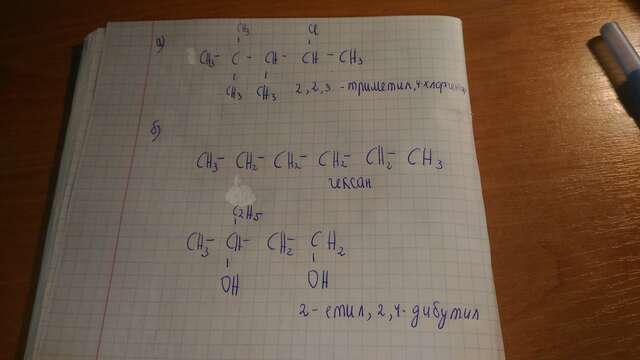 а)
CH3 Cl
CH3 - C - CH - CH - CH3
CH3 CH3 2,2,3 - триметил,4-хлорпентан
б)
CH3 - CH2 - CH2 - CH2 - CH2 - CH3
гексан
C2H5
CH3 - CH - CH2 - CH2
OH OH
2- етил, 2,4- дибутил